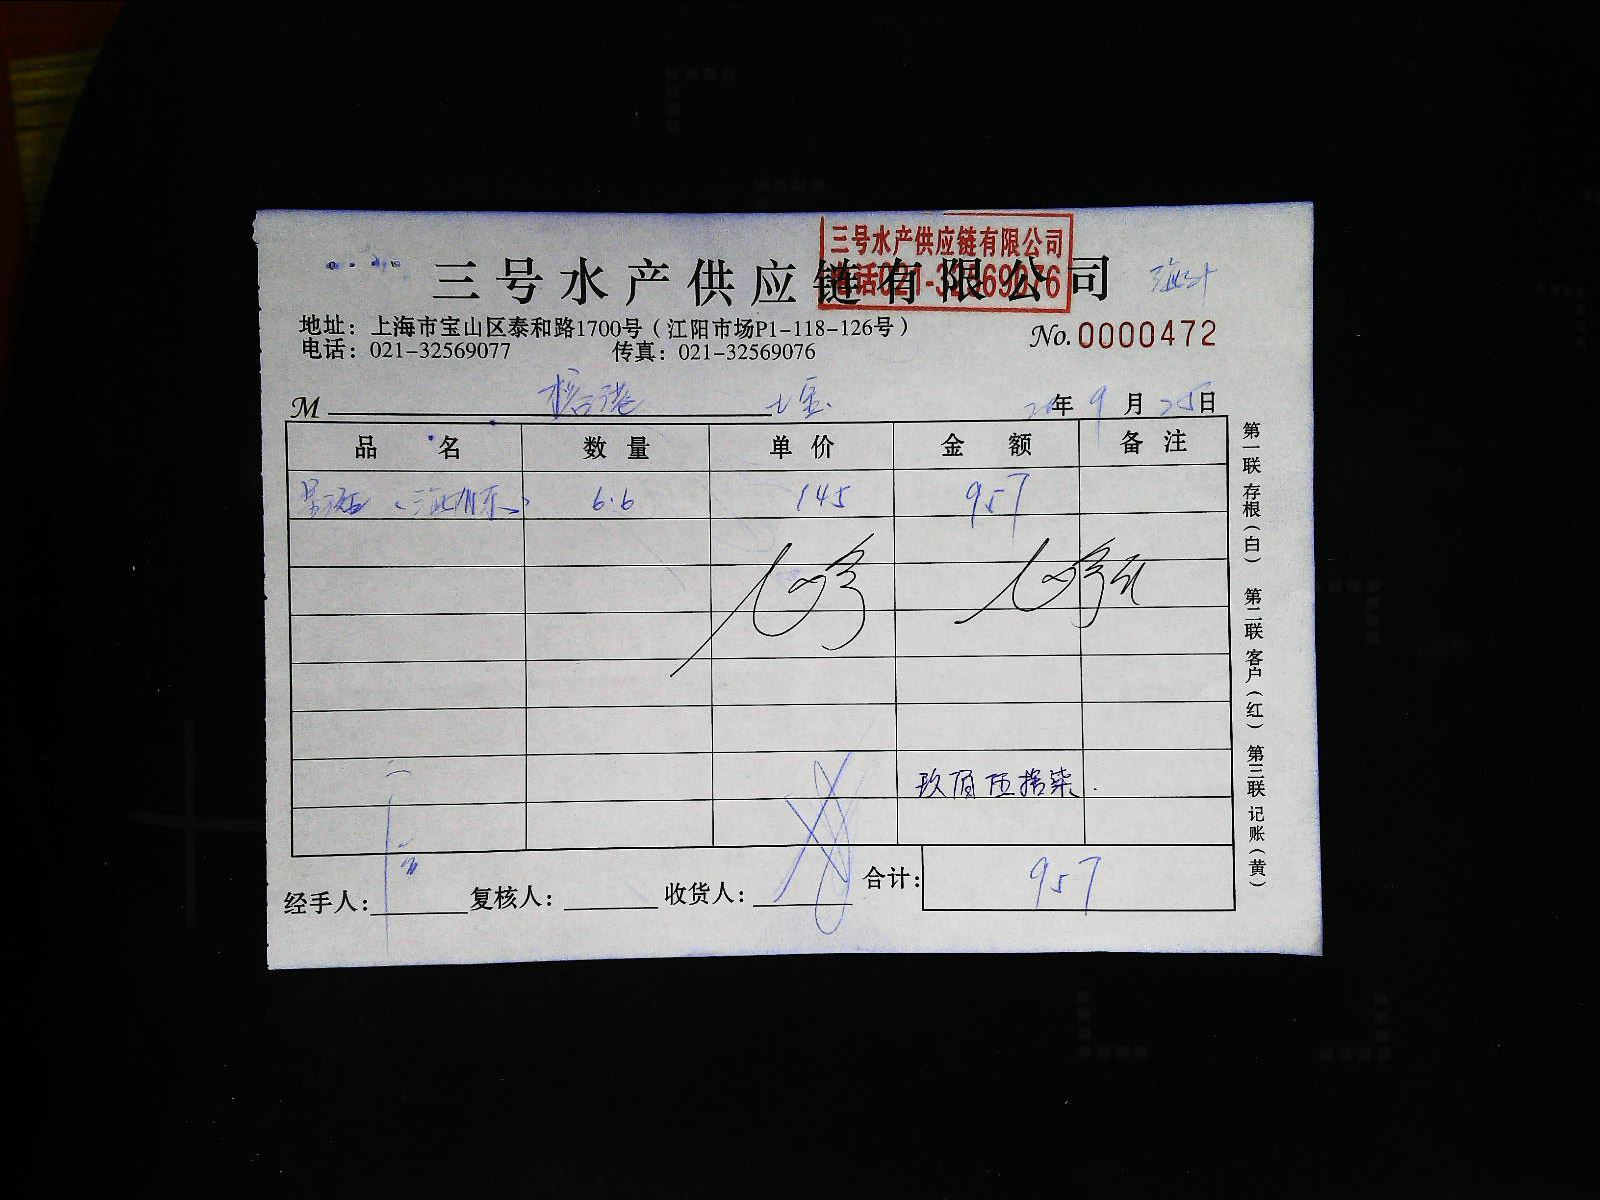 三号水产供应链有限公司
电话021-32569076
三号水产供应链有限公司
地址：上海市宝山区泰和路1700号（江阳市场P1-118-126号）
电话：021-32569077 传真：021-32569076
No. 0000472
M
年 9 月 25 日
品 名 数 量 单 价 金 额 备 注
6.6 145 957
玖佰伍拾柒
经手人： 复核人： 收货人： 合计： 957
第一联 存根（白） 第二联 客户（红） 第三联 记账（黄）